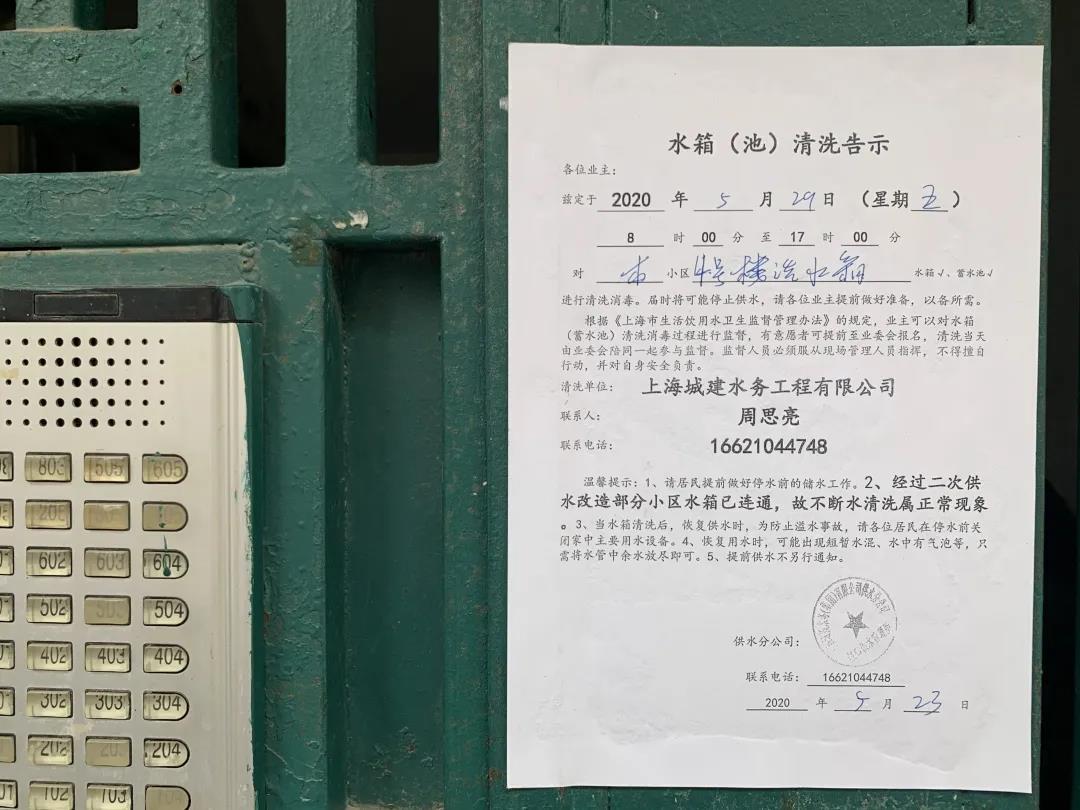 水箱（池）清洗告示
各位业主：
兹定于 2020 年 5 月 29 日 （星期 五 ）
8 时 00 分 至 17 时 00 分
对 本 小区 4号楼洗水箱 水箱√、蓄水池√
进行清洗消毒。届时将可能停止供水，请各位业主提前做好准备，以备所需。
根据《上海市生活饮用水卫生监督管理办法》的规定，业主可以对水箱
（蓄水池）清洗消毒过程进行监督，有意愿者可提前至业委会报名，清洗当天
由业委会陪同一起参与监督。监督人员必须服从现场管理人员指挥，不得擅自
行动，并对自身安全负责。
清洗单位： 上海城建水务工程有限公司
联系人： 周思亮
联系电话： 16621044748
温馨提示：1、请居民提前做好停水前的储水工作。2、经过二次供
水改造部分小区水箱已连通，故不断水清洗属正常现象
。3、当水箱清洗后，恢复供水时，为防止溢水事故，请各位居民在停水前关
闭家中主要用水设备。4、恢复用水时，可能出现短暂水混、水中有气泡等，只
需将水管中余水放尽即可。5、提前供水不另行通知。
供水分公司：
联系电话： 16621044748
2020 年 5 月 23 日
803 505 605
602 603 604
502 503 504
402 403 404
302 303 304
202 203 204
102 103